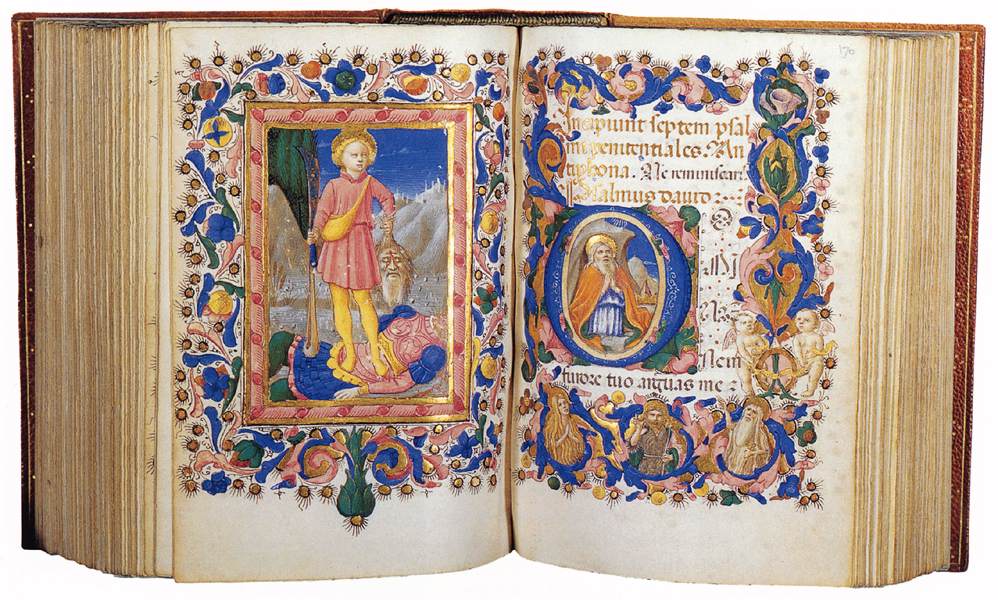 Incipiunt septem psal
mi penitentiales. An
tiphona. Ne reminiscaris
Psalmus dauid :
O
MI
NE
Ne in
furore tuo arguas me :